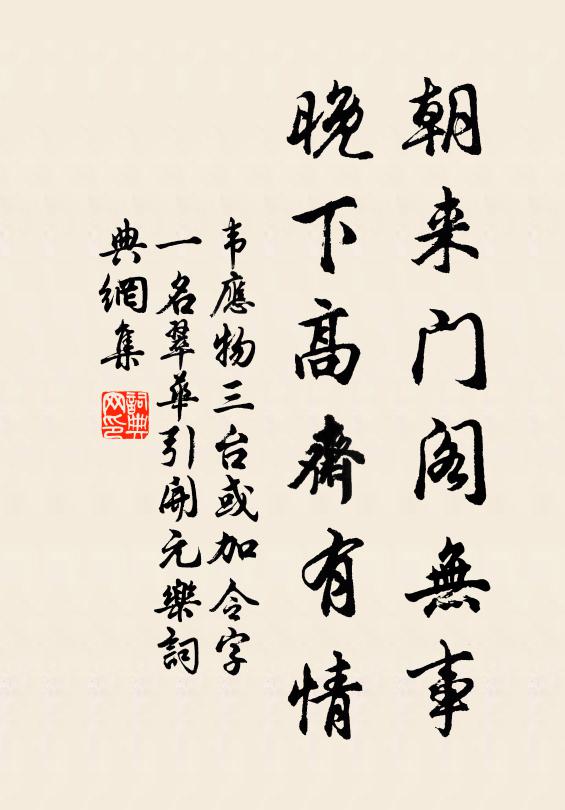 朝来门阁無事
晚下高齋有情
韦應物三台或加令字
一名翠華引開元樂詞
典網集
詞典
网印